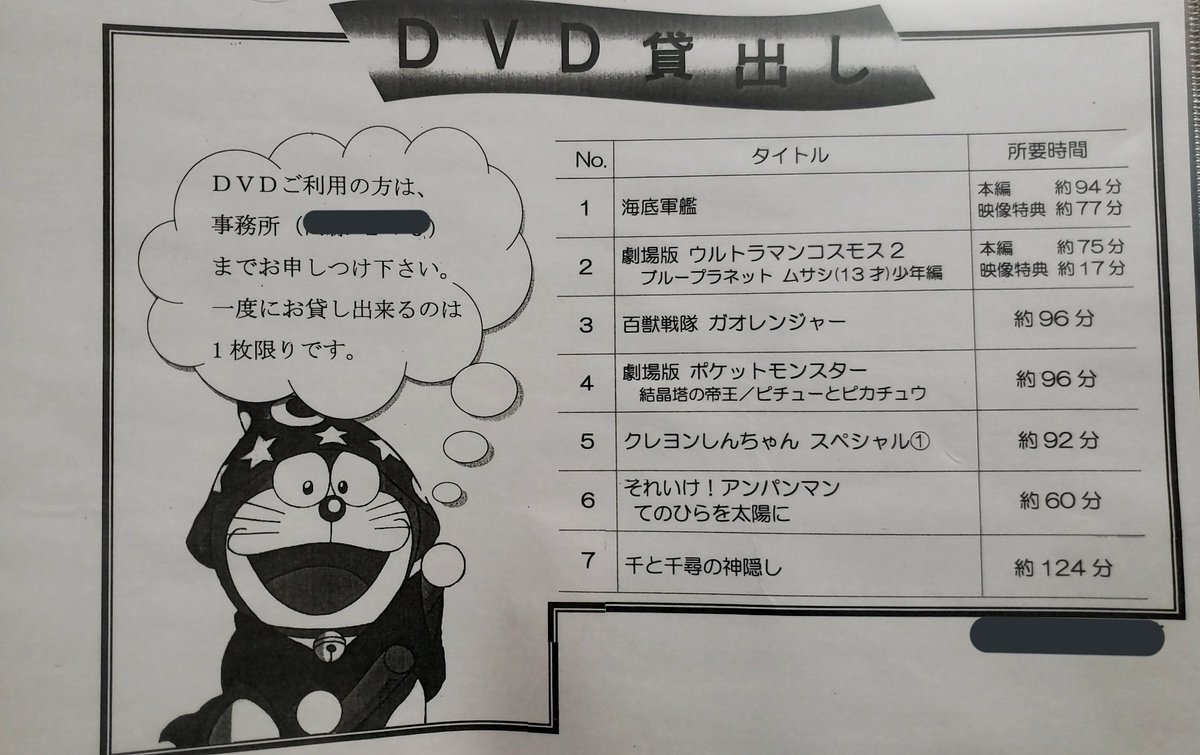 DVD貸出し
DVDご利用の方は、
事務所（
までお申しつけ下さい。
一度にお貸し出来るのは
1枚限りです。
No. タイトル 所要時間
1 海底軍艦 本編 約94分
映像特典 約77分
2 劇場版 ウルトラマンコスモス2 本編 約75分
ブループラネット ムサシ(13才)少年編 映像特典 約17分
3 百獣戦隊 ガオレンジャー 約96分
4 劇場版 ポケットモンスター 約96分
結晶塔の帝王／ピチューとピカチュウ
5 クレヨンしんちゃん スペシャル① 約92分
6 それいけ！アンパンマン 約60分
てのひらを太陽に
7 千と千尋の神隠し 約124分